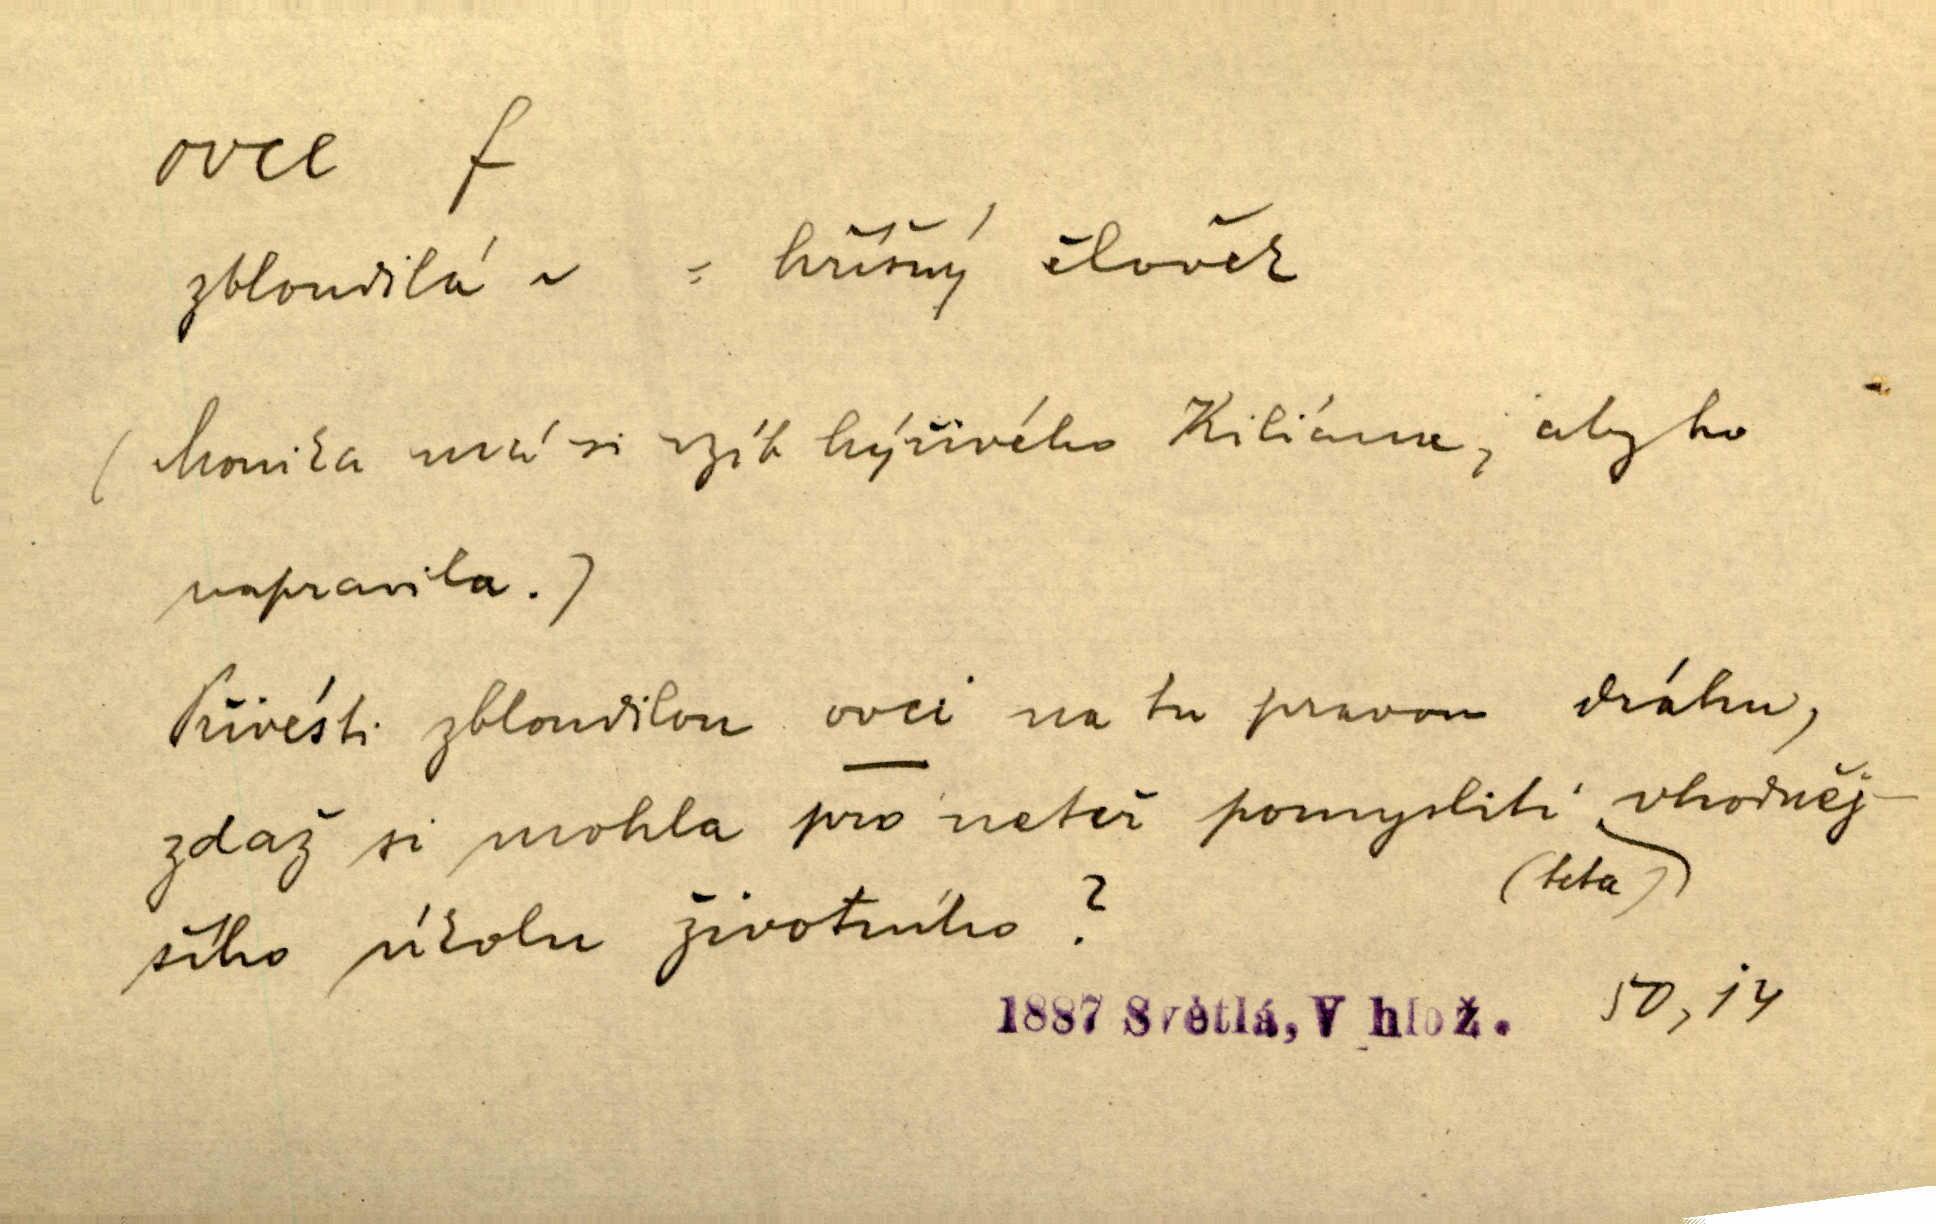 ovce f
zbloudilá ~ = hříšný člověk
(Monika má si vzít hýřivého Kiliána, aby ho
napravila.)
Přivésti zbloudilou ovci na tu pravou dráhu,
zdaž si mohla pro neteř pomysliti vhodněj-
(teta)
šího úkolu životního?
1887 Světlá, V hlož. 50, 14